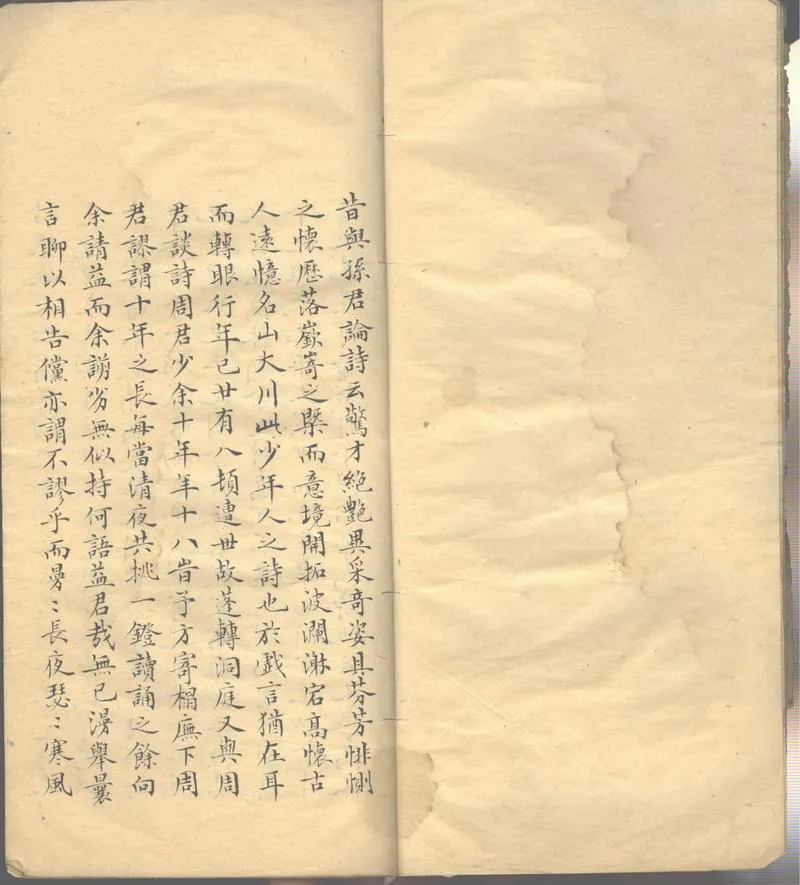 昔與孫君論詩云驚才絕艷異采奇姿具芬芳悱惻
之懷歷落嶔嵜之槩而意境開拓波瀾淋宕高懷古
人遠憶名山大川此少年人之詩也於戲言猶在耳
而轉眼行年已廿有八頓遭世故蓬轉洞庭又與周
君談詩周君少余十年年十八昔予方寄榻廡下周
君謬謂十年之長每當清夜共挑一鐙讀誦之餘向
余請益而余譾劣無似持何語益君哉無已漫舉曩
言聊以相告儻亦謂不謬乎而曼〻長夜瑟〻寒風